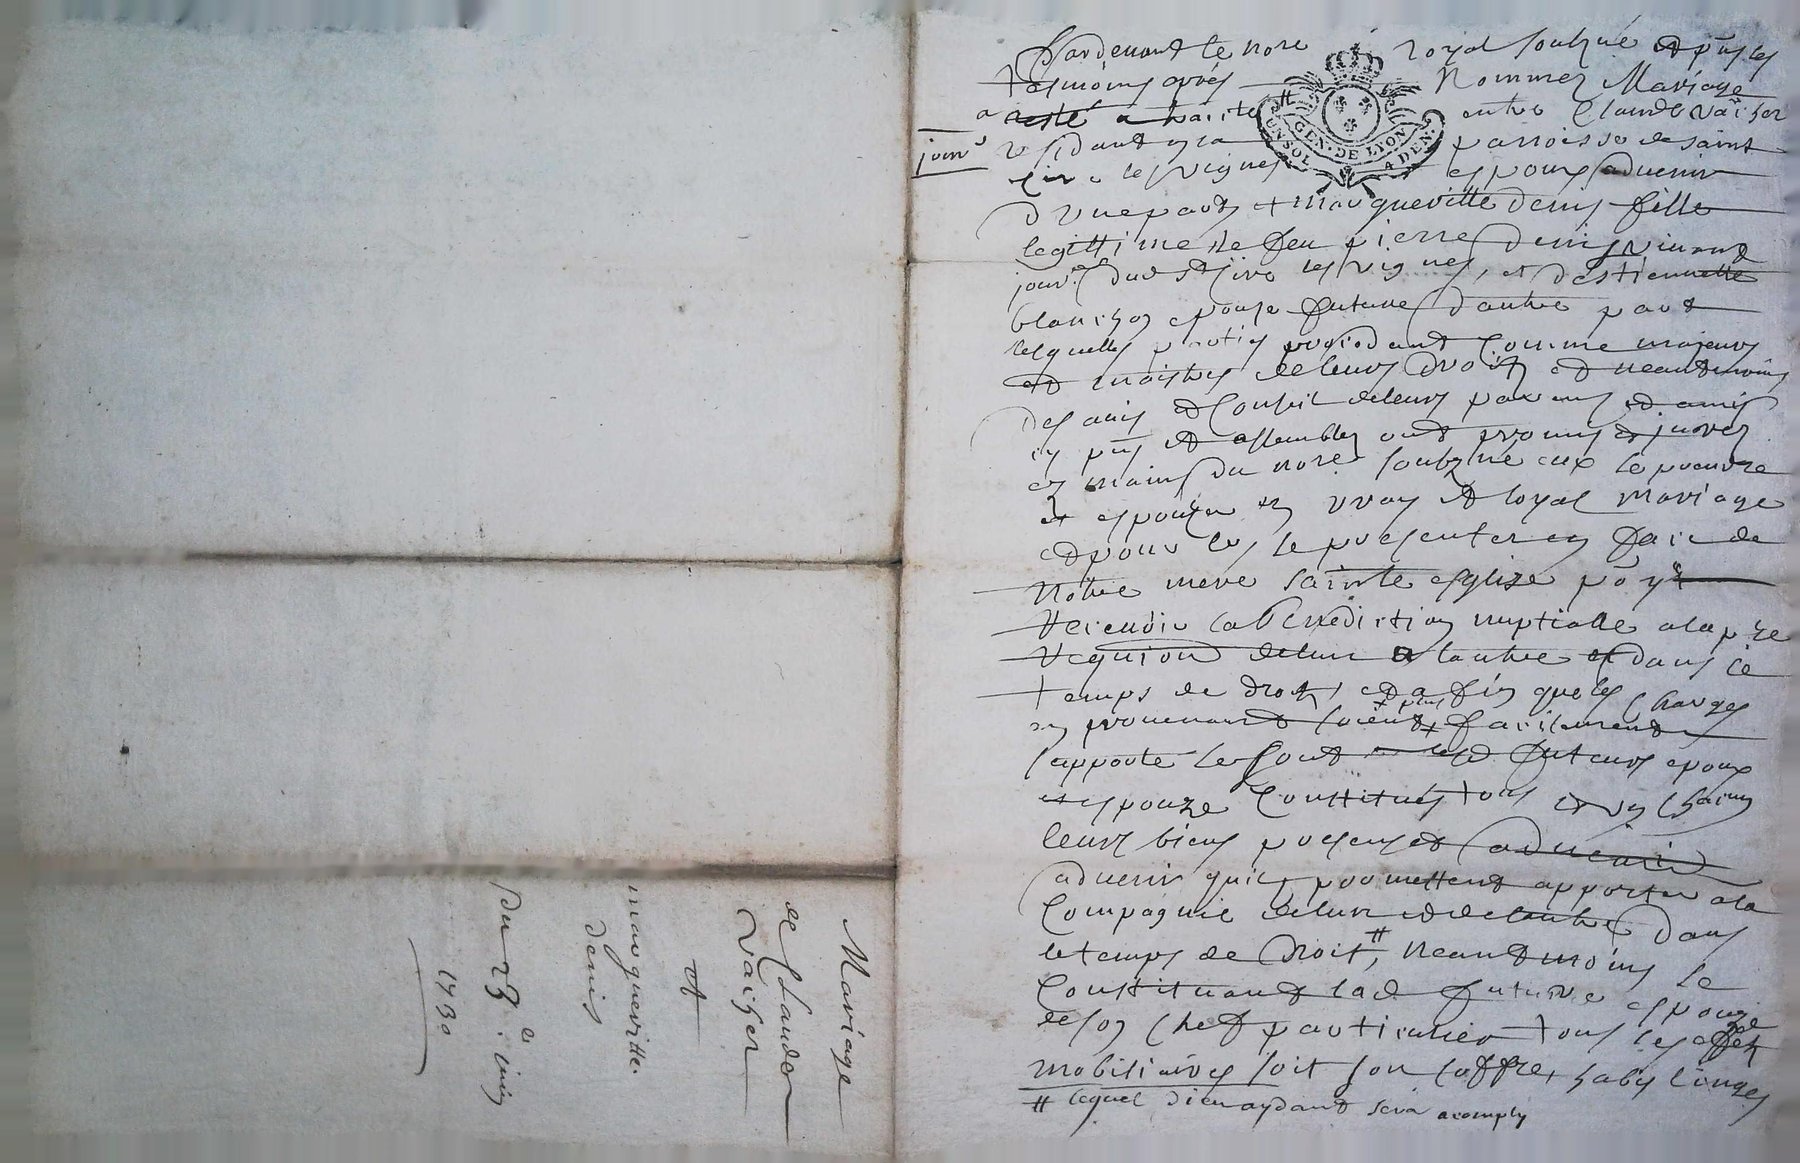 Pardevant le no.re royal soubzné et pn̄ts les
tesmoins apres nommez Mariage
a esté a traitté # entre Claude Vaicher
jour.r residant en la parroisse de saint
les vignes espoux advenir
d'une part et Margueritte Denis fille
legittime de feu pierre Denis vivant
jour.r dud St les vignes, et d'Estiennette
blanchon epouze future d'autre part
lesquelles parties procedant comme majeurs
et maistres de leurs droits et neantmoins
des avis et Conseil de leurs parens et amis
icy pn̄ts et assemblez ont promis et jurez
es mains du no.re soubzné eux se prendre
et espouzer en vray et loyal mariage
et pour ce se presenter en face de
Notre mere sainte esglize po.r y
Recevoir la Benediction nuptialle a la p.re
Requi.on de l'un a l'autre et dans le
temps de droit, et afin que les Charges
en provenant soient + plus + facilement
supporté se sont lesd futurs epoux
et espouze Constitués tous et un chacun
leurs biens presens et advenir
advenir qu'ils promettent apporter a la
Compagnie de l'un et de l'autre Dans
le temps de Droit #, Neantmoins se
Constituant lad future espouze
de son Chef particulier tous les effets
mobiliaires soit son coffre, habis linges
# lequel Dieu aydant sera acomply
GEN. DE LYON
UN SOL 4 DEN.
Mariage
de Claude
Vaicher
et
margueritte
denis
Du 23.e juin
1730